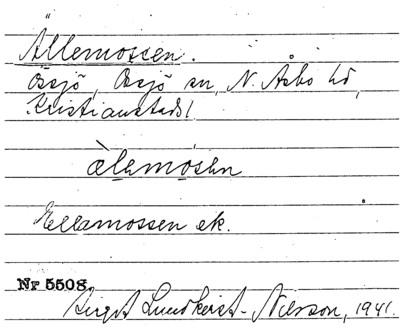 Ällemossen.
Össjö, Össjö sn, N. Åsbo hd,
Kristianstads l
àlemosen
Ellamossen ek.
Nr 5508
Birgit Lundkvist-Nilsson, 1941.